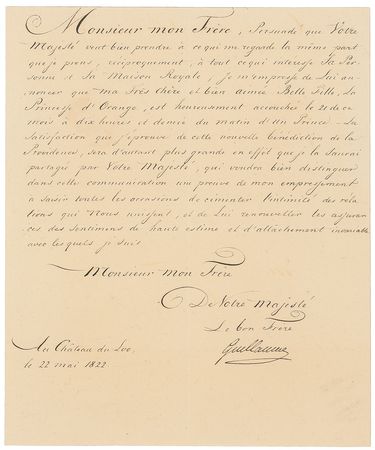 Monsieur mon Frère, Persuadé que Votre
Majesté veut bien prendre à ce qui me regarde la même part
que je prens, réciproquement, à tout ce qui interesse Sa Per-
sonne et Sa Maison Royale, je m'empresse de Lui an-
noncer que ma très chère et bien aimée Belle Fille, La
Princesse d'Orange, est heureusement accouchée le 21 de ce
mois à dix heures et demie du matin d'un Prince. La
Satisfaction que j'éprouve de cette nouvelle bénédiction de la
Providence, sera d'autant plus grande en effet que je la saurai
partagée par Votre Majesté, qui voudra bien distinguer
dans cette communication une preuve de mon empressement
à saisir toutes les occasions de cimenter l'intimité des rela-
tions qui Nous unissent, et de Lui renouveller les assuran-
ces des Sentimens de haute estime et d'attachement invariable
avec lesquels je suis
Monsieur mon Frère
De Votre Majesté
Le bon Frère
Guillaume
Au Château du Loo,
le 22 mai 1822.